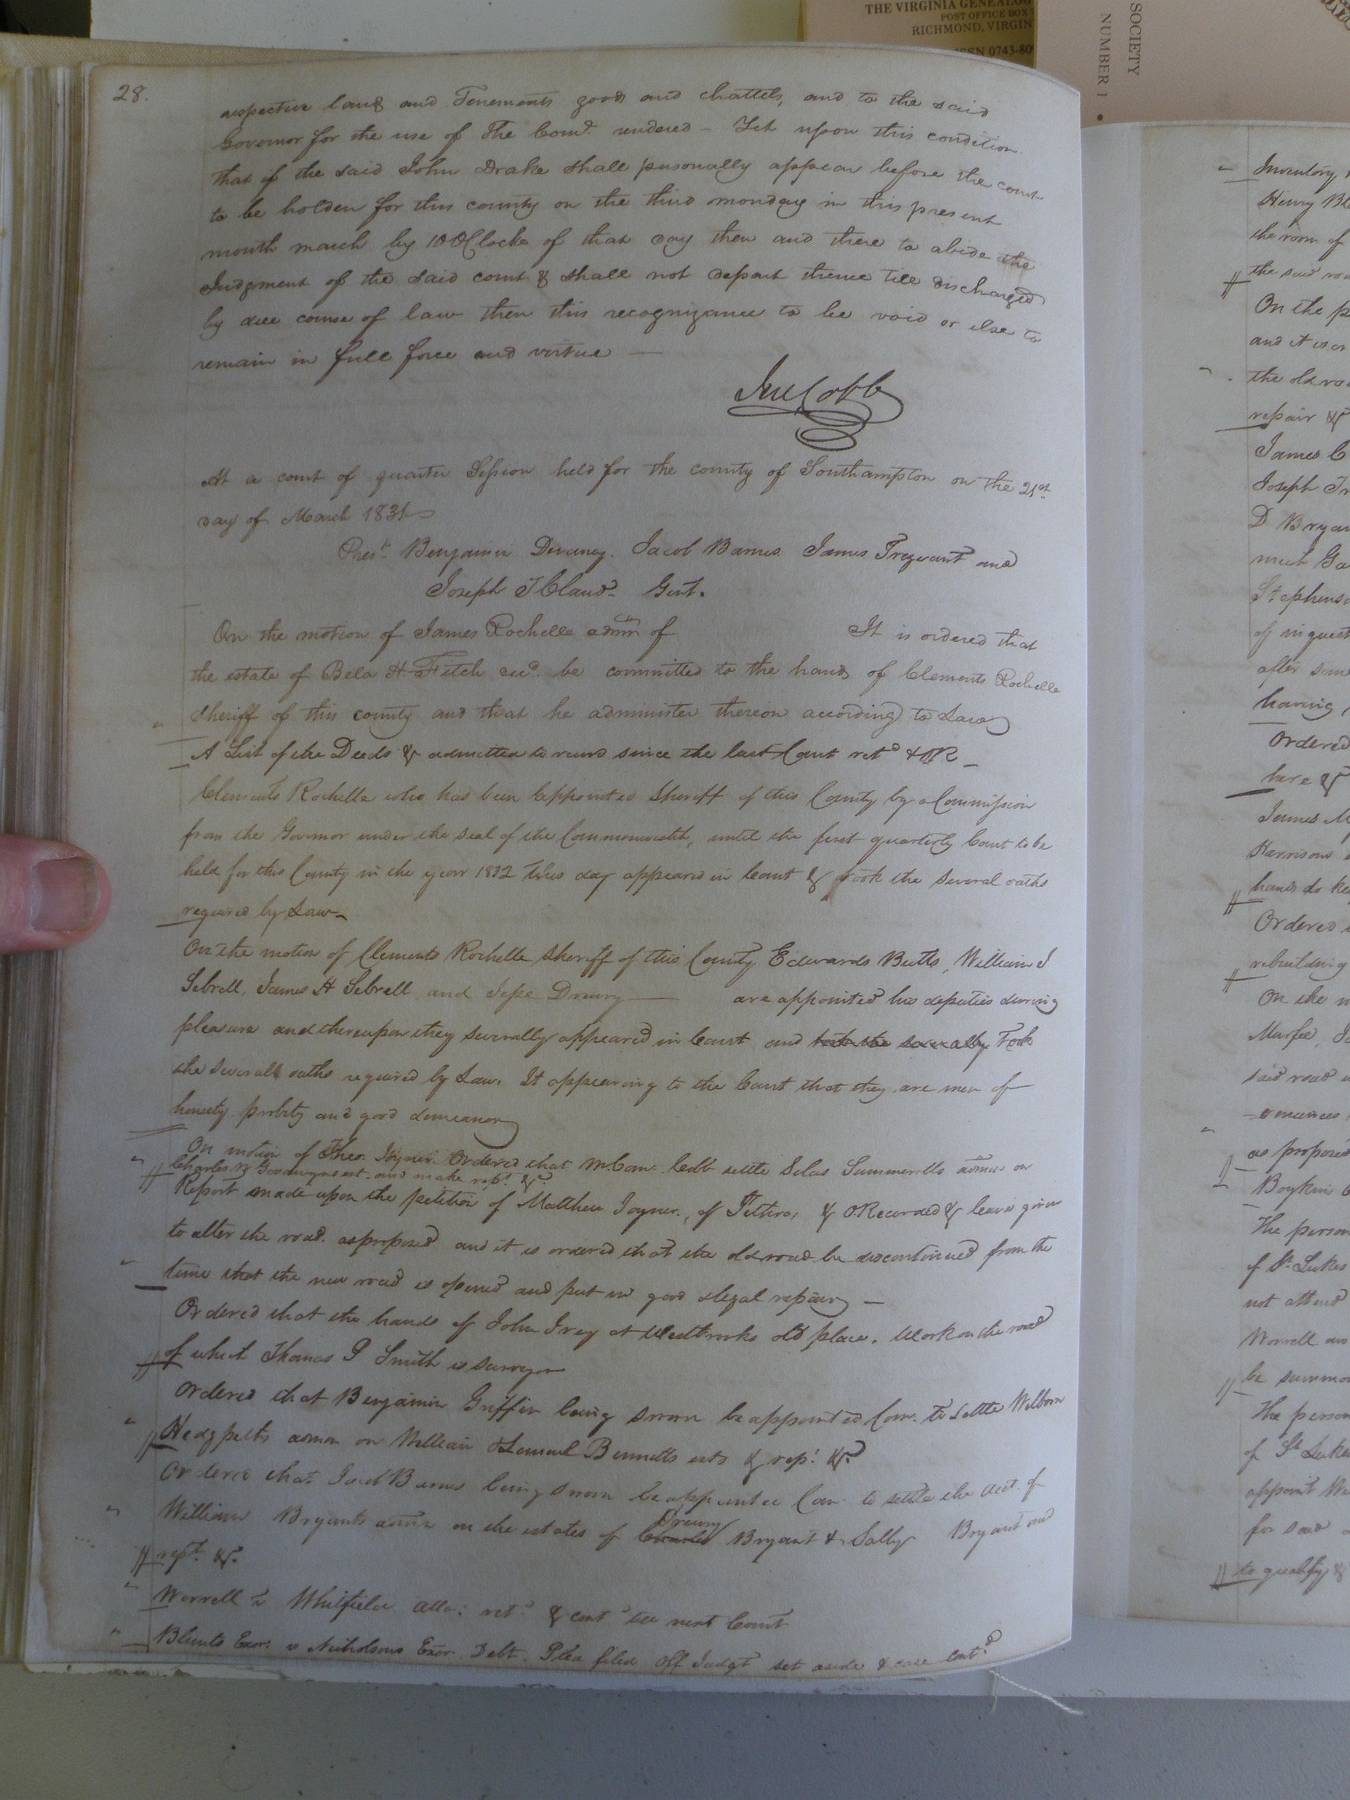 THE VIRGINIA GENEALOG
POST OFFICE BOX
RICHMOND, VIRGIN
ISSN 0743-80
SOCIETY
NUMBER 1
28.
respective lands and Tenements goods and chattels, and to the said
Governor for the use of the Comd. rendered - Yet upon this condition
that if the said John Drake shall personally appear before the court
to be holden for this county on the third monday in this present
month march by 10 OClock of that day then and there to abide the
Judgment of the said court & shall not depart thence till discharged
by due course of law then this recognizance to be void or else to
remain in full force and virtue —
Jno Cobb
At a court of quarter Session held for the county of Southampton on the 21st
day of March 1831
Prest. Benjamin Devaney. Jacob Barnes James Trezvant and
Joseph T Claud. Gent.
On the motion of James Rochelle admr of It is ordered that
the estate of Bela H. Fitch decd. be committed to the hands of Clements Rochelle
sheriff of this county and that he administer thereon according to Law
A List of the Deeds & admitted to record since the last Court retd & OR
Clements Rochelle who has been appointed Sheriff of this County by a Commission
from the Governor under the seal of the Commonwealth, until the first quarterly Court to be
held for this County in the year 1832 this day appeared in Court & took the several oaths
required by Law
On the motion of Clements Rochelle sheriff of this County Edwards Butts, William J
Sebrell, James H Sebrell and Jesse Drewry — are appointed his deputies during
pleasure and thereupon they severally appeared in Court and took the severally Took
the several oaths required by Law. It appearing to the Court that they are men of
honesty probity and good demeanor
On motion of Theo. Joyner Ordered that Cobb settle Silas Summerells admr on
Charles est. and make rept. &c
Report made upon the petition of Matthew Joyner, & ORecorded & leave given
to alter the road as proposed and it is ordered that the old road be discontinued from the
time that the new road is opened and put in good & legal repair —
Ordered that the hands of John Ivey at Westbrooks old place. Work on the road
of which Thomas P Smith is surveyor
Ordered that Benjamin Griffin being sworn be appointed Com. to settle Wilborn
Hedgpeths admon on William & Lemuel Bennetts ests & rept. &c.
Ordered that Jacob Barnes being sworn be appointed Com. to settle the acct. of
William Bryants admr on the estates of Charles Drewry Bryant & Sally Bryant and
rept. &c.
Worrell v Whitfield retd. & contd till next Court
Blunts Exor. v Nicholsons Exor. Debt. Plea filed Off Judgt set aside & case Contd
Inventory
Henry Bl
the room of
the said roa
On the p
and it is or
the old roa
repair &
James C
Joseph Tr
D Bryan
meet
Stephenso
of inquest
after
having
Ordered
here &
James M
Harrisons
hands to ke
Ordered
rebuilding
On the m
Murfee, J
said road
as proposed
Boykin
The person
of St. Lukes
not attend
Worrell
be summo
The person
of St Lukes
appoint W
for said
to qualify &